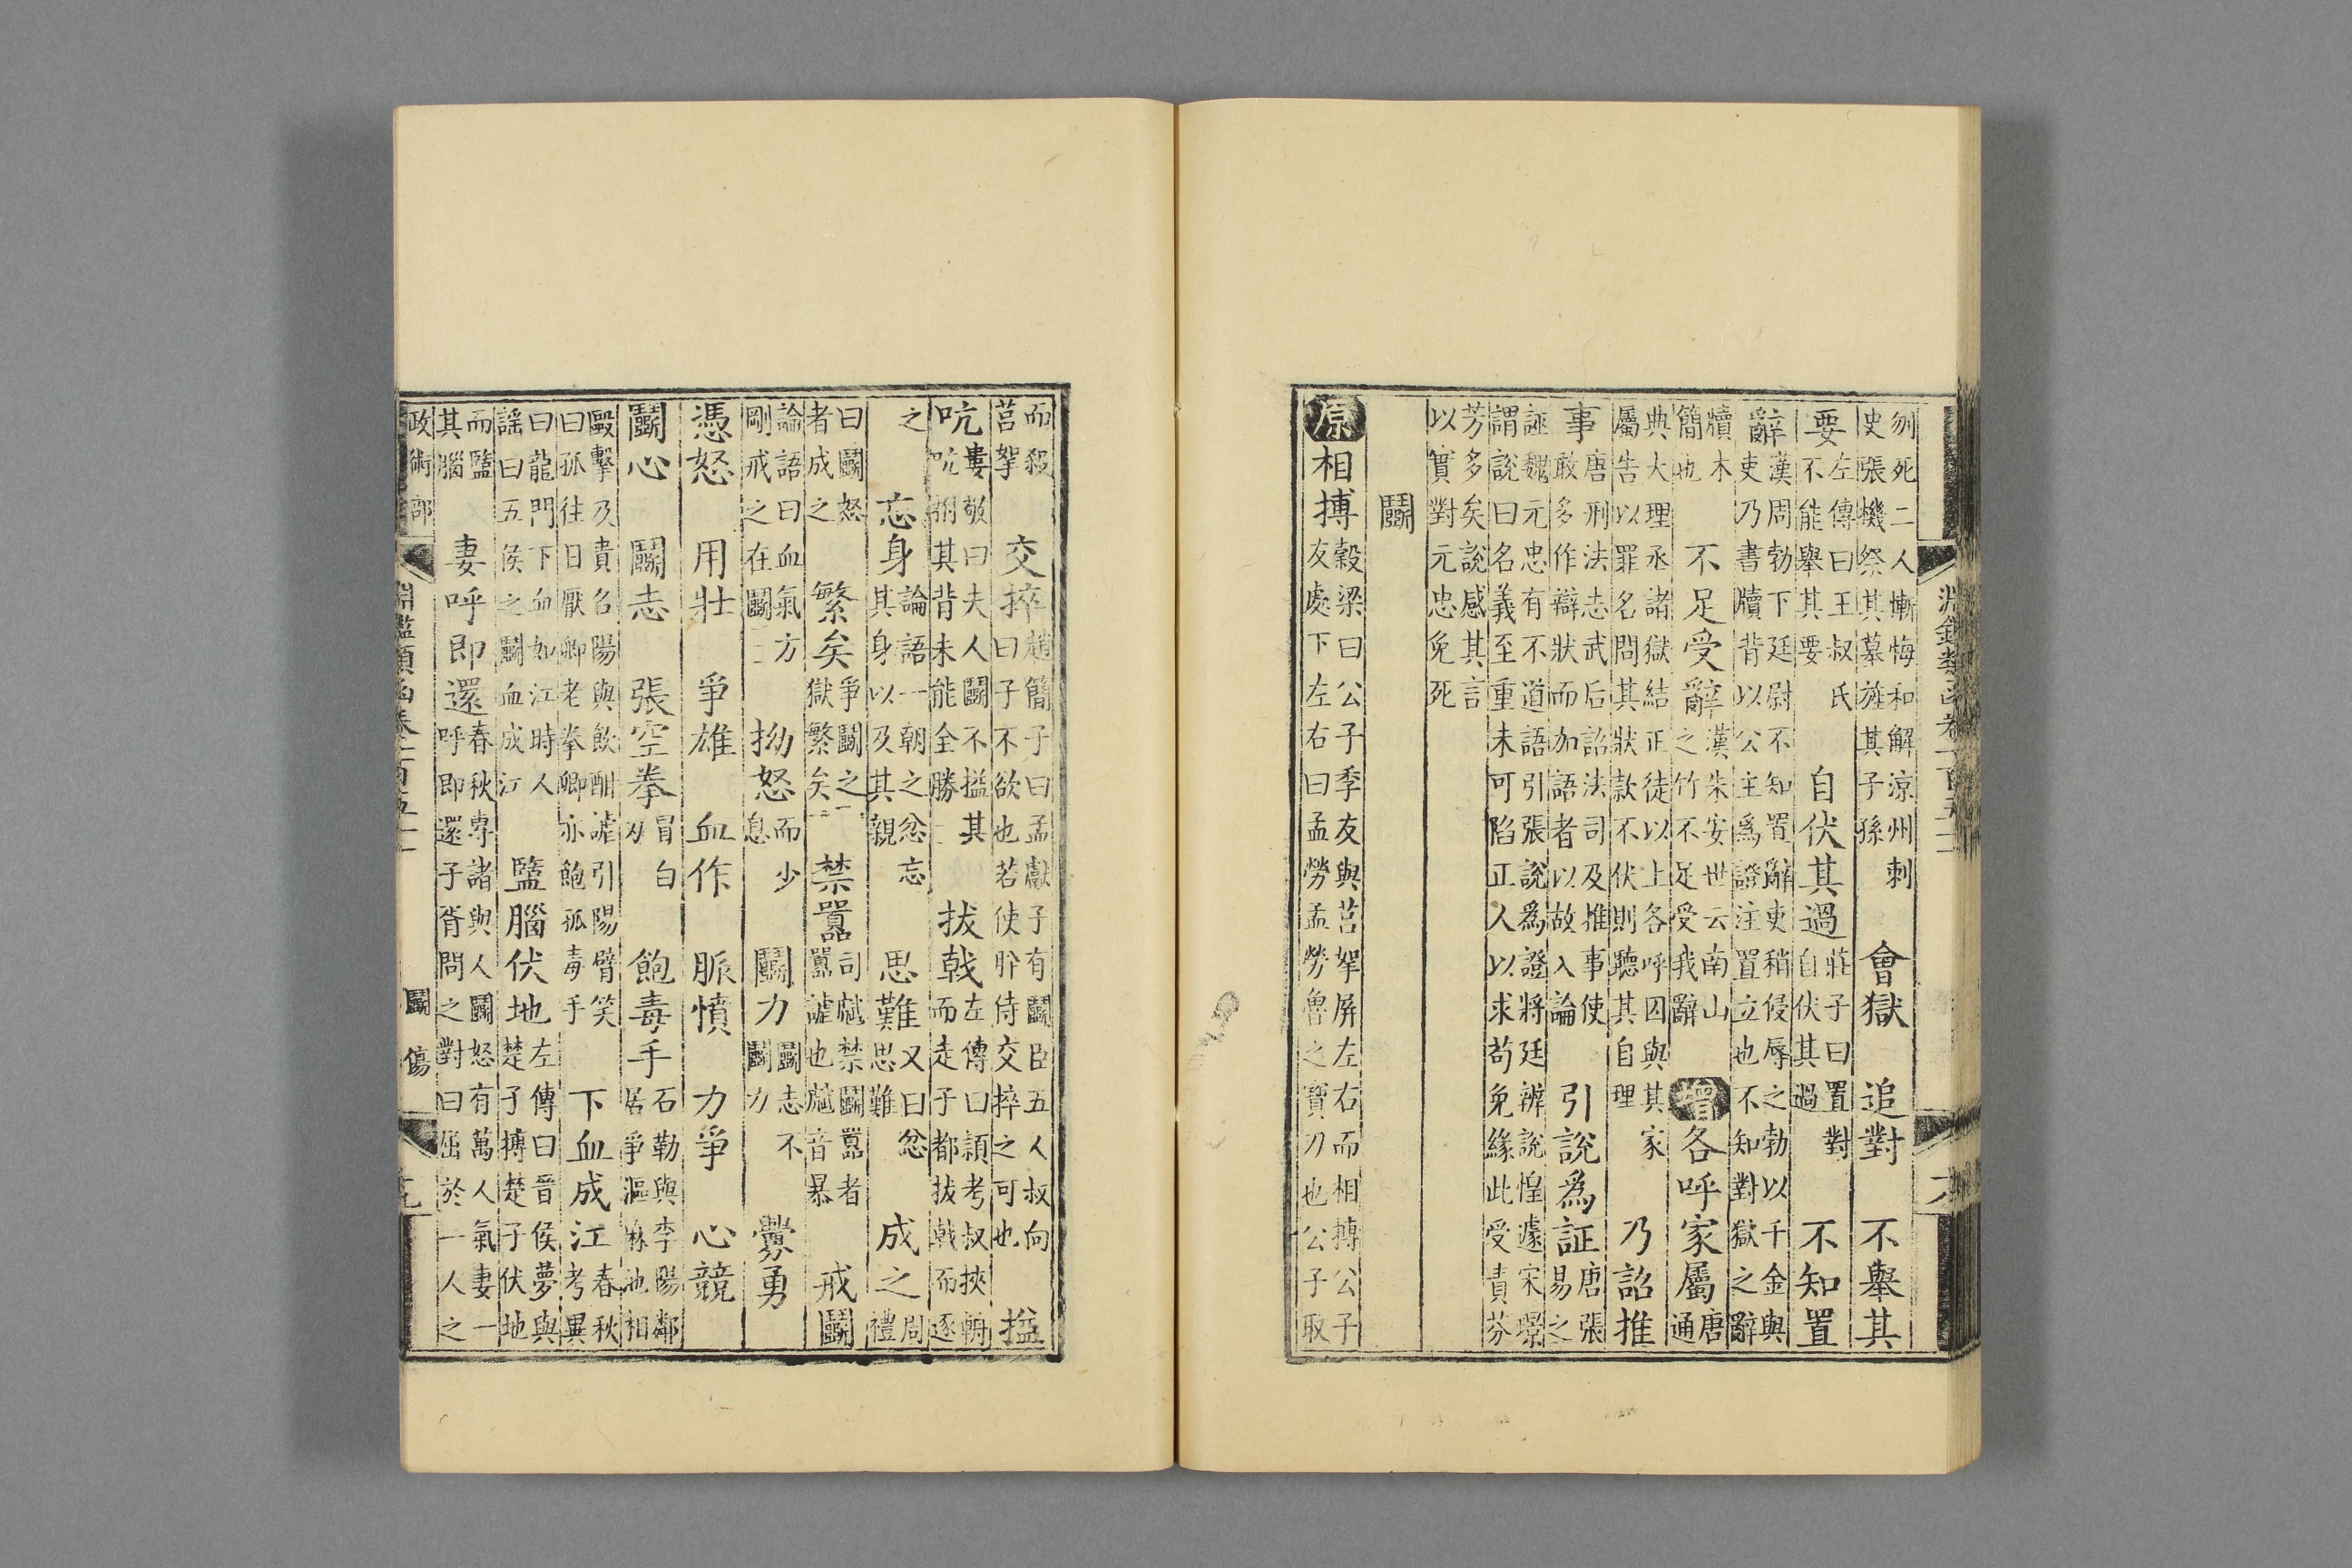 淵鑑類函卷一百五十二
刎死二人慚悔和解涼州刺史張機祭其墓旌其子孫　會獄　追對　不舉其
要左傳曰王叔氏不能舉其要　自伏其過莊子曰置對自伏其過　不知置
辭漢周勃下廷尉不知置辭吏稍侵辱之勃以千金與吏乃書牘背以公主為證注置立也不知對獄之辭
牘木簡也　不足受辭漢朱安世云南山之竹不足受我辭　增各呼家屬唐通
典大理丞諸獄結正徒以上各呼囚與其家屬告以罪名問其狀款不伏則聽其自理　乃詔推
事唐刑法志武后詔法司及推事使敢多作辯狀而加語者以故入論　引說為証唐張易之
誣魏元忠有不道語引張說為證將廷辨說惶遽宋璟謂說曰名義至重未可陷正人以求苟免緣此受責芬
芳多矣說感其言以實對元忠免死
鬬
原相搏穀梁曰公子季友與莒挐屏左右而相搏公子友處下左右曰孟勞孟勞魯之寶刀也公子取
而殺莒挐　交捽趙簡子曰孟獻子有鬬臣五人叔向曰子不欲也若使肸侍交捽之可也　搤
吭婁敬曰夫人鬬不搤其吭拊其背未能全勝　拔戟左傳曰頴考叔挾輈而走子都拔戟而逐
之　忘身論語一朝之忿忘其身以及其親　思難又曰忿思難　成之周禮
曰鬬怒者成之　繁矣爭鬬之獄繁矣　禁嚻司虣禁鬬嚻者嚻謔也虣音暴　戒鬬
論語曰血氣方剛戒之在鬬　拗怒而少息　鬬力鬬志不鬬力　釁勇
憑怒　用壯　爭雄　血作　脈憤　力爭　心競
鬬心　鬬志　張空拳冒白刃　飽毒手石勒與李陽鄰居爭漚麻池相
毆擊及貴名陽與飲酣謔引陽臂笑曰孤往日厭卿老拳卿亦飽孤毒手　下血成江春秋考異
曰龍門下血如江時人謠曰五侯之鬬血成江　盬腦伏地左傳曰晉侯夢與楚子搏楚子伏地
而盬其腦　妻呼即還春秋專諸與人鬬怒有萬人氣妻一呼即還子胥問之對曰屈於一人之
政術部　淵鑑類函卷一百五十二　鬬　傷